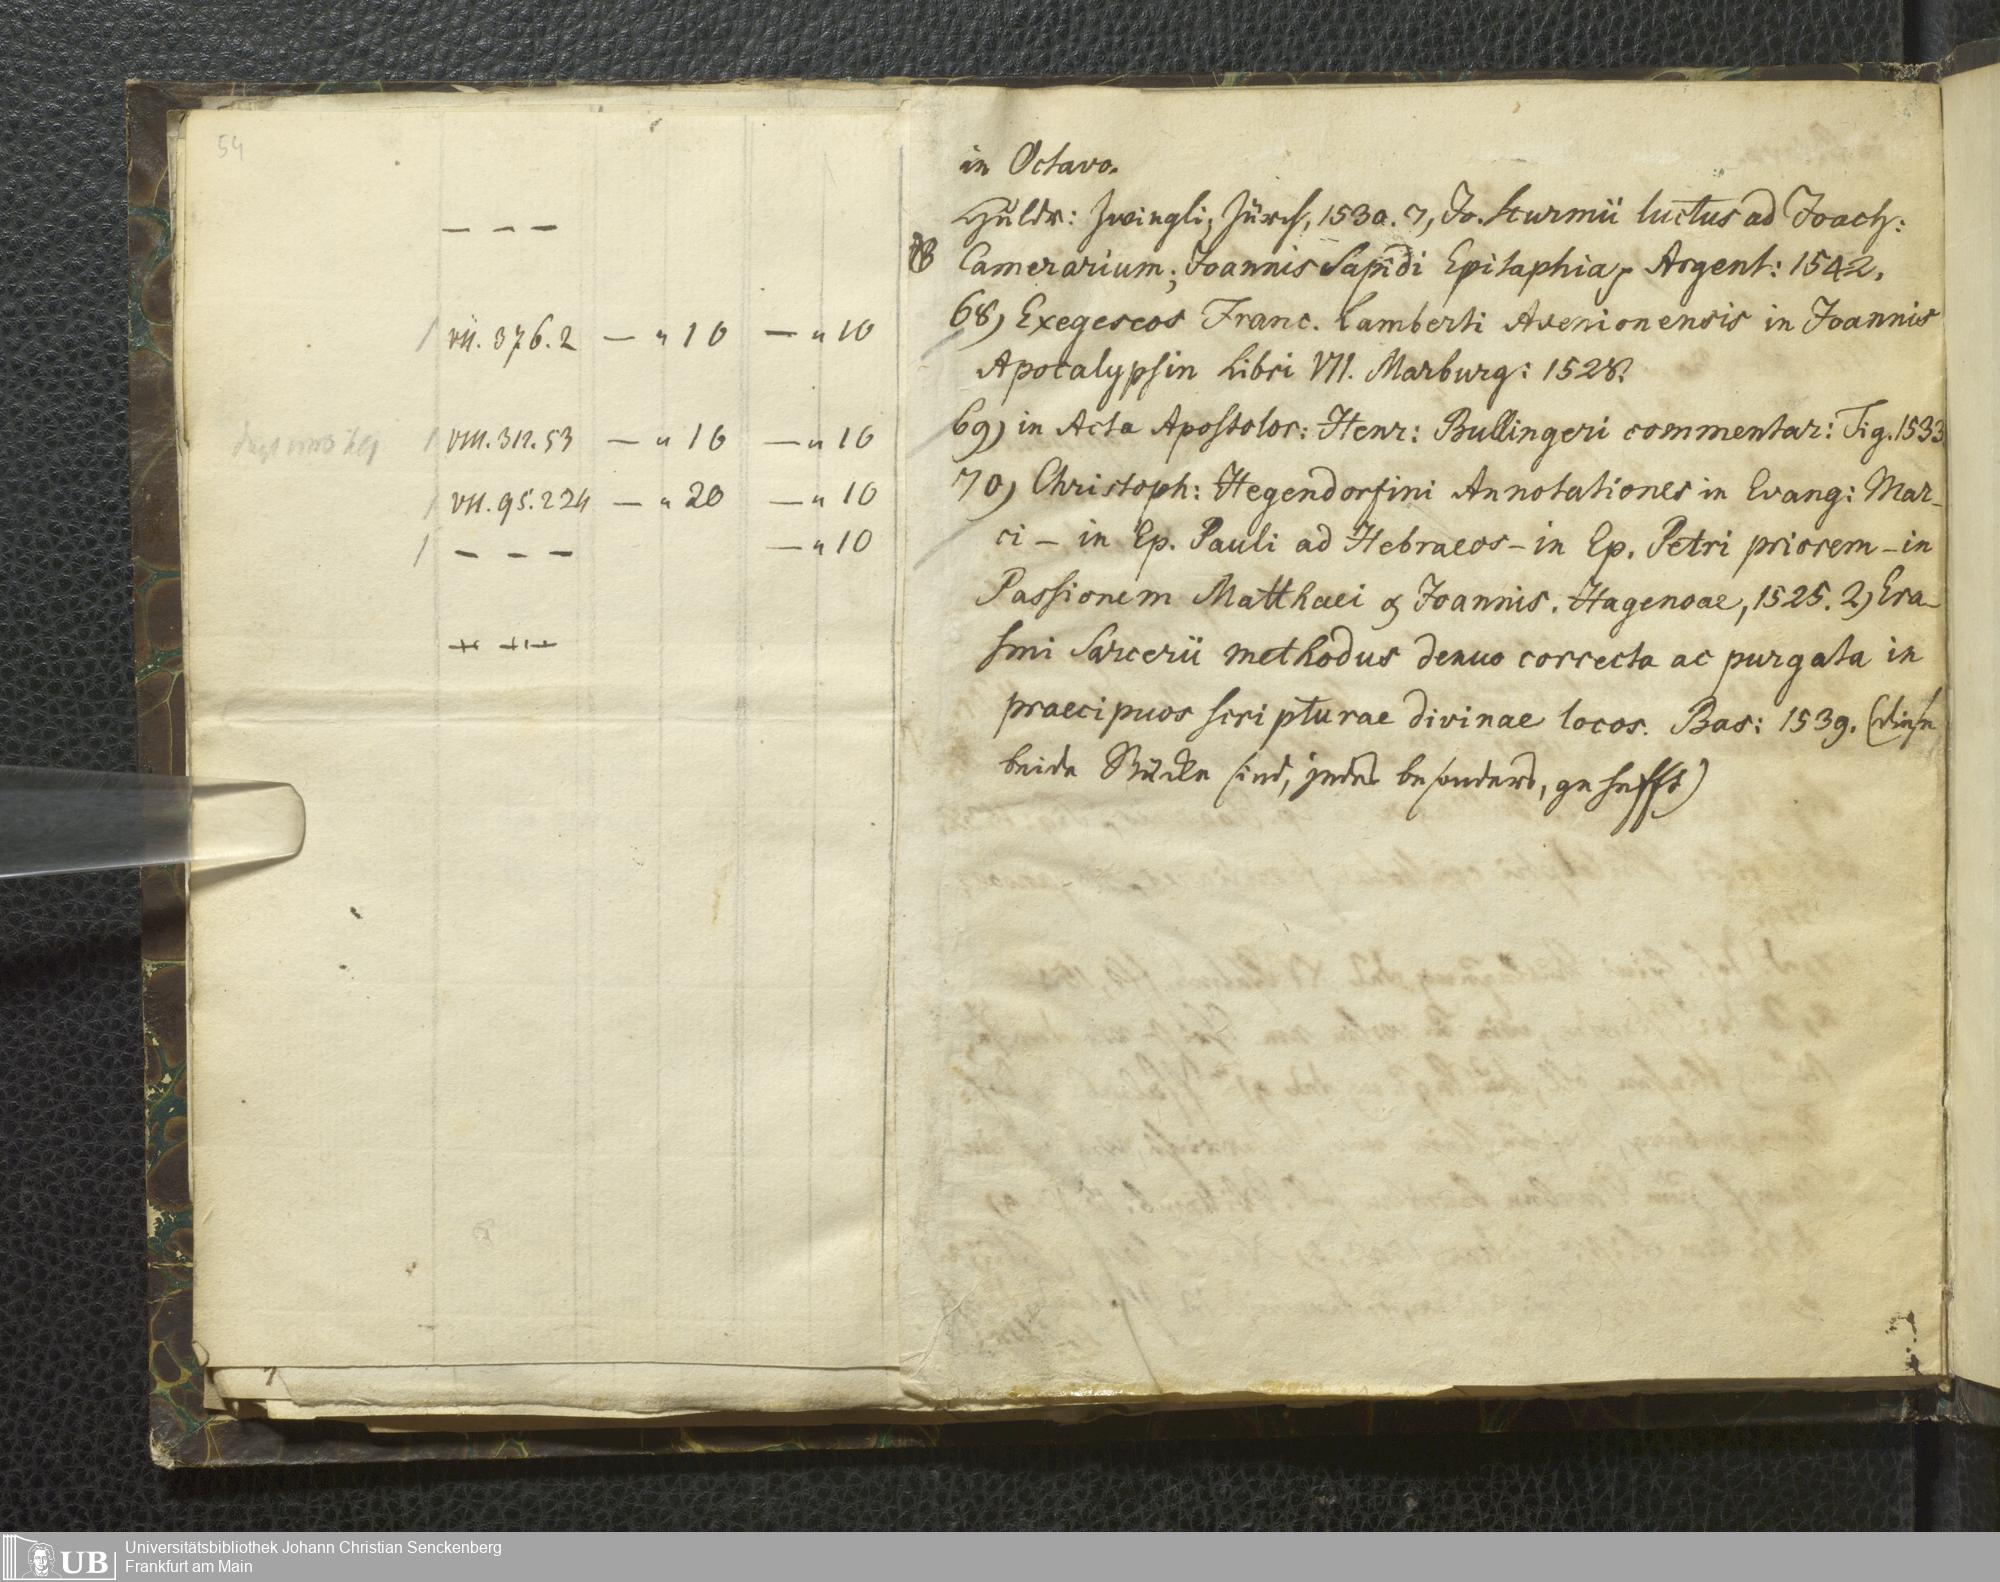 54
— — —
/ VII. 376.2 — " 10 — " 10
/ VIII. 311. 53 — " 16 — " 16
/ VII. 95. 224 — " 20 — " 10
/ — — — — " 10
in Octavo.
Huldr: Zwingli, Zürch, 1530. 7, Jo. Sturmii luctus ad Joach:
Camerarium; Joannis Sapidi Epitaphia, Argent: 1542.
68) Exegeseos Franc. Lamberti Avenionensis in Joannis
Apocalypsin Libri VII. Marburg: 1528.
69) in Acta Apostolor: Henr: Bullingeri commentar: Tig. 1533
70) Christoph: Hegendorfini Annotationes in Evang: Mar-
ci – in Ep. Pauli ad Hebraeos – in Ep. Petri priorem – in
Passionem Matthaei & Joannis. Hagenoae, 1525. 2) Era-
smi Sarcerii methodus denuo correcta ac purgata in
praecipuos scripturae divinae locos. Bas: 1539. (diese
beide Stücke sind, jedes besonders, gehefft)
UB Universitätsbibliothek Johann Christian Senckenberg
Frankfurt am Main